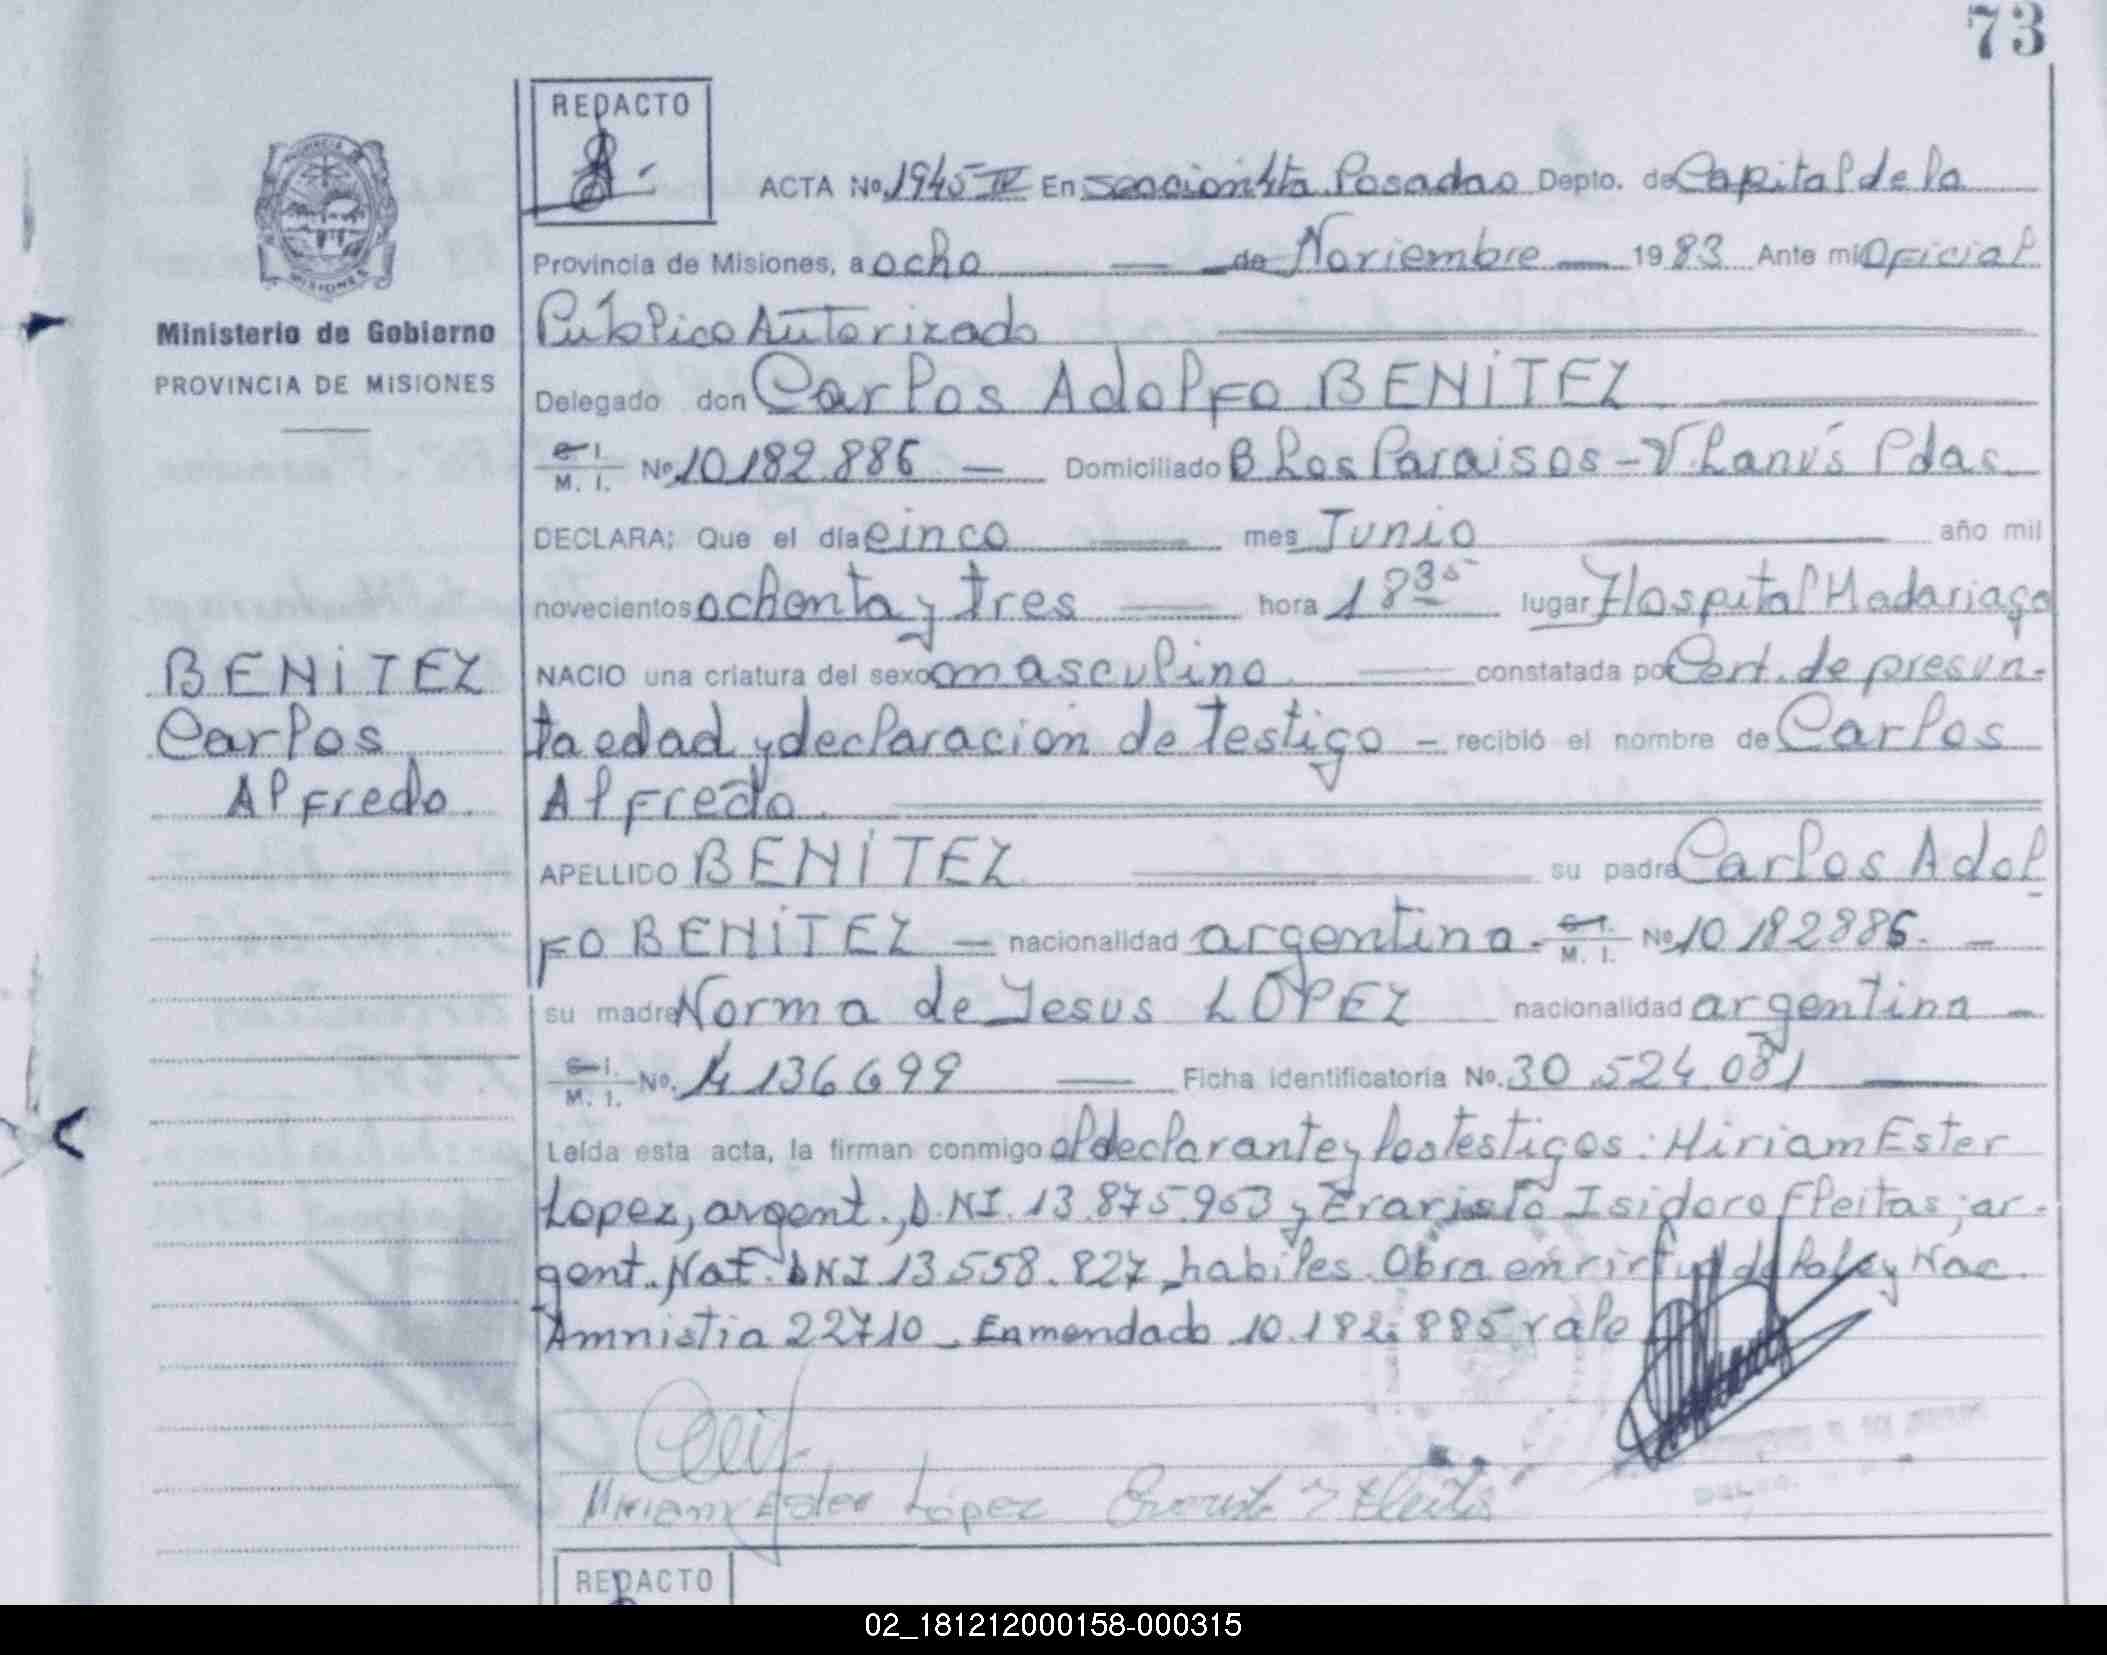 73
REDACTO
ACTA No. 1945 IV En sección 4ta Posadas Depto. de Capital de la
Provincia de Misiones, a ocho de Noviembre 1983 Ante mi Oficial
Público Autorizado
Delegado don Carlos Adolfo BENÍTEZ
C. I.
M. I. No 10182.886 Domiciliado B Los Paraisos - V. Lanús Pdas.
DECLARA; Que el día cinco mes Junio año mil
novecientos ochenta y tres hora 18 35 lugar Hospital Madariaga
NACIO una criatura del sexo masculino constatada por Cert. de presun-
ta edad y declaración de testigo - recibió el nombre de Carlos
Alfredo
APELLIDO BENÍTEZ su padre Carlos Adol
fo BENÍTEZ nacionalidad argentina. C. I.
M. I. No 10182886.
su madre Norma de Jesus LÓPEZ nacionalidad argentina
C. I.
M. I. No. 14136699 Ficha identificatoria No. 30.524.081
Leída esta acta, la firman conmigo el declarante y los testigos: Miriam Ester
Lopez, argent., D.NI. 13.875.953 y Evaristo Isidoro Fleitas; ar-
gent. Nat. DNI 13558.827 habiles. Obra en virtud de la ley Nac.
Amnistia 22710 - Enmendado 10.182.885 vale
Miriam Ester López
REDACTO
PROVINCIA DE
MISIONES
Ministerio de Gobierno
PROVINCIA DE MISIONES
BENÍTEZ
Carlos
Alfredo
02_181212000158-000315